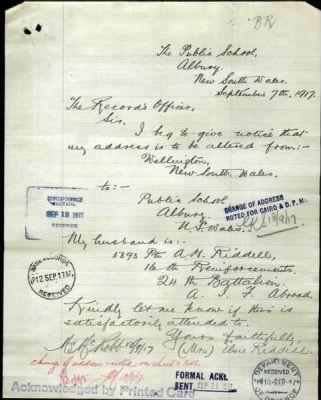 BR
The Public School,
Albury.
New South Wales.
September 7th, 1917.
The Records Officer,
Sir,
I beg to give notice that
my address is to be altered from:-
Wellington,
New South Wales.
to:-
Public School
Albury
N.S. Wales.
CHANGE OF ADDRESS
NOTED FOR CAIRO & D.P.M.
13/9/17
SEP 10 1917
RECEIVED
My husband is:-
5893 Pte A. H. Riddell,
16th Reinforcements.
24th Battalion
A. I. F. Abroad.
12 SEP. 17
RECEIVED
Kindly let me know if this is
satisfactorily attended to.
Yours faithfully,
(Mrs) Elsie Riddell
change of address
Acknowledged by Printed Card
FORMAL ACKT.
SENT
DEPARTMENT
RECEIVED
OF DEFENCE